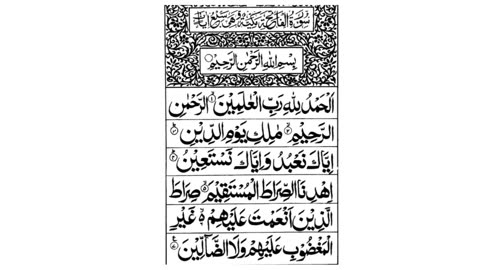 سُوْرَةُ الْفَاتِحَةِ مَكِّيَّةٌ وَّهِيَ سَبْعُ اٰيَاتٍ
بِسْمِ اللّٰهِ الرَّحْمٰنِ الرَّحِيْمِ
اَلْحَمْدُ لِلّٰهِ رَبِّ الْعٰلَمِيْنَ ۱ الرَّحْمٰنِ
الرَّحِيْمِ ۲ مٰلِكِ يَوْمِ الدِّيْنِ ۳
اِيَّاكَ نَعْبُدُ وَاِيَّاكَ نَسْتَعِيْنُ ۴
اِهْدِنَا الصِّرَاطَ الْمُسْتَقِيْمَ ۵ صِرَاطَ
الَّذِيْنَ اَنْعَمْتَ عَلَيْهِمْ ۶ غَيْرِ
الْمَغْضُوْبِ عَلَيْهِمْ وَلَا الضَّآلِّيْنَ ۷